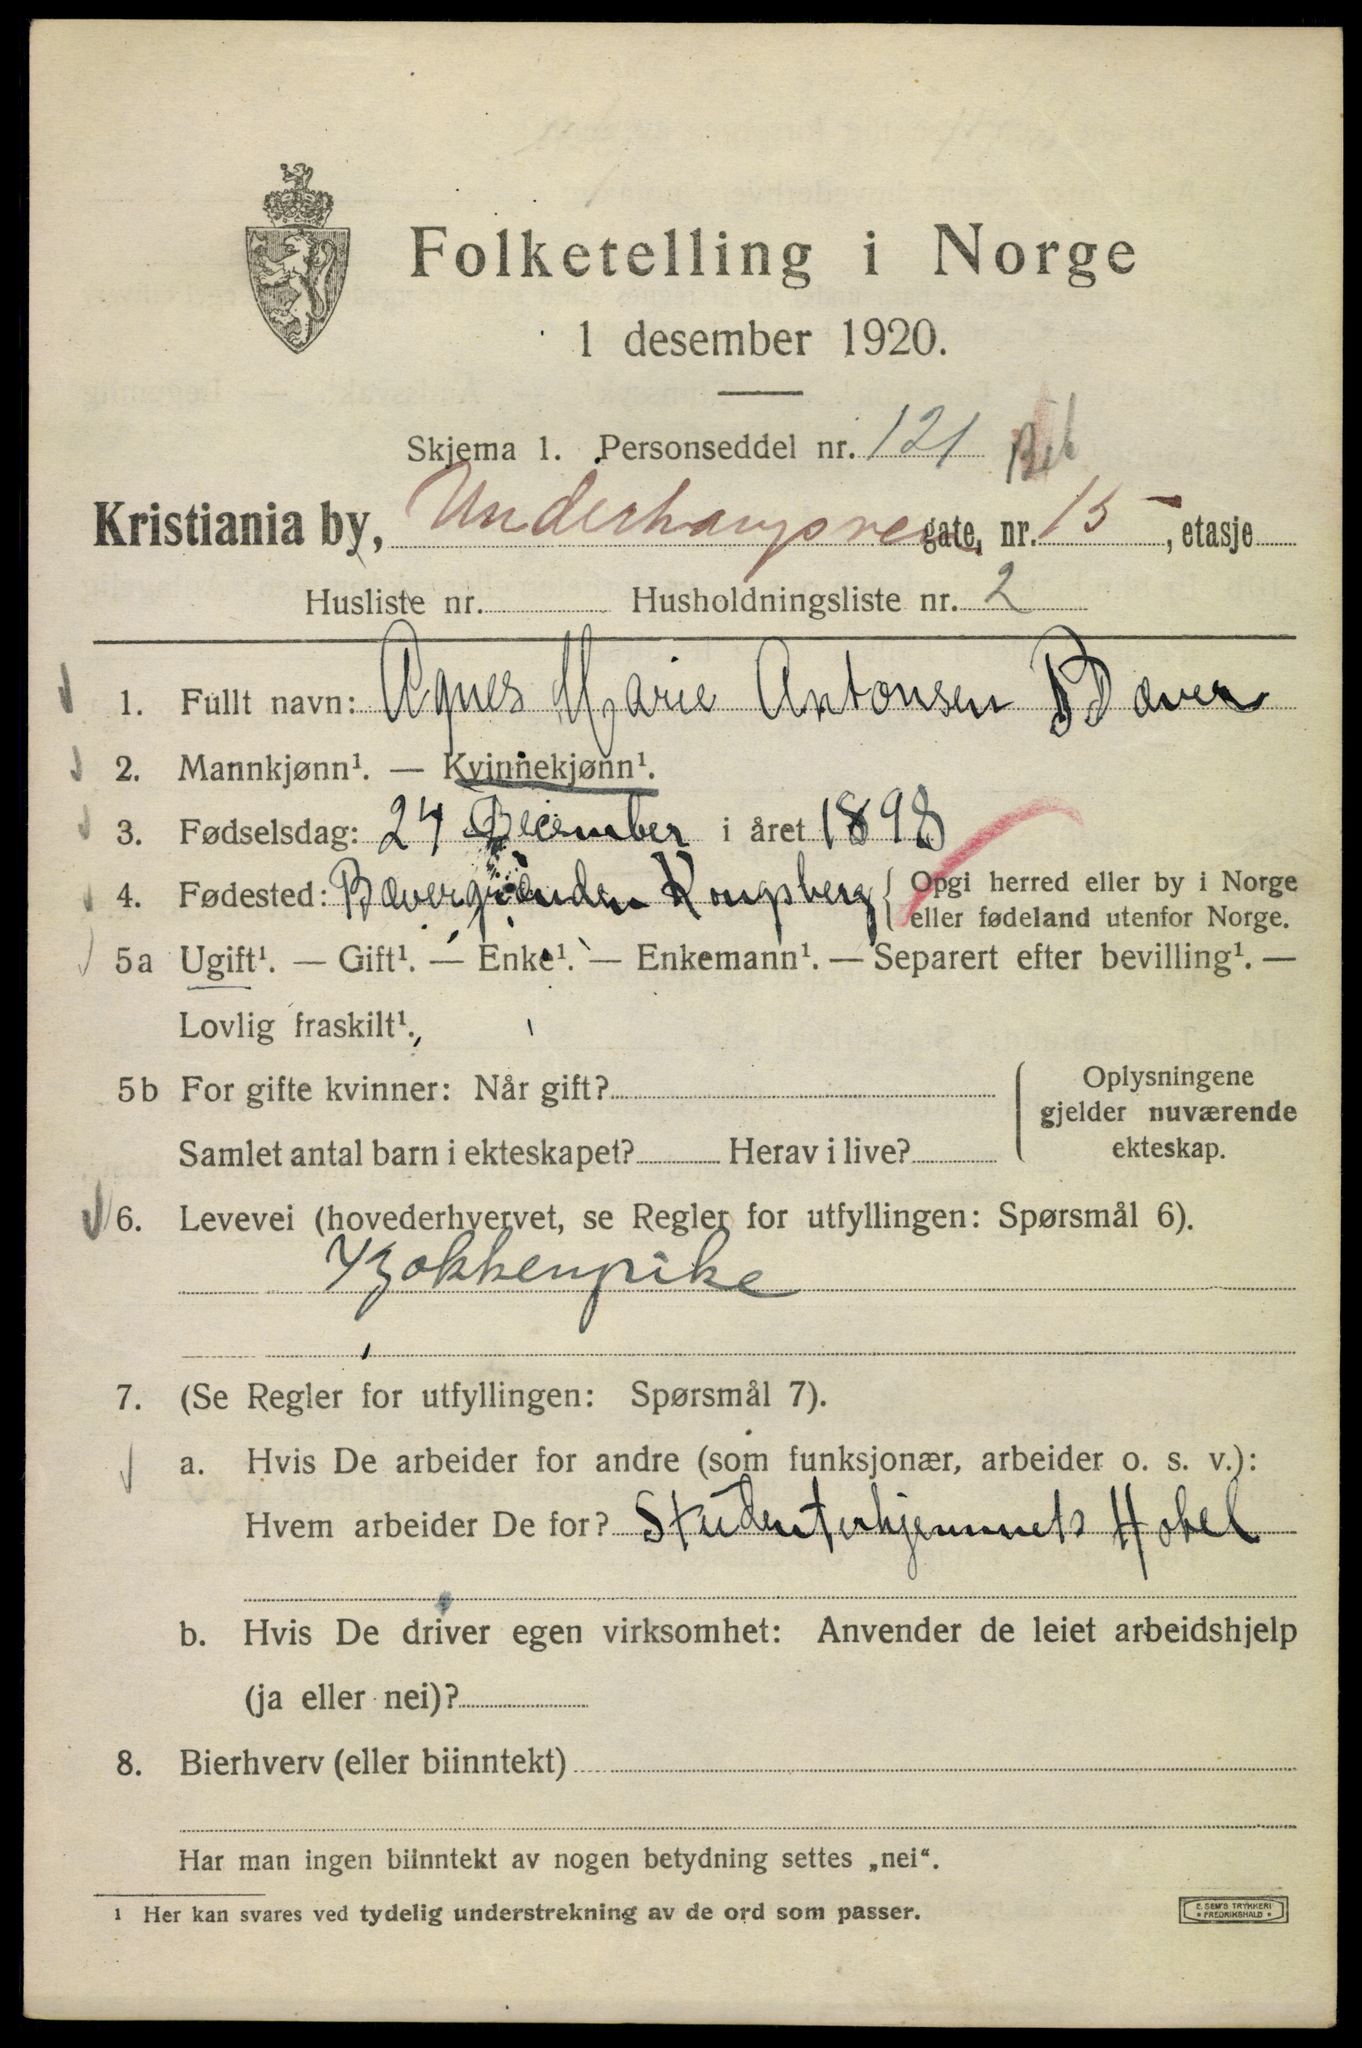 Folketelling i Norge
1 desember 1920.
Skjema 1. Personseddel nr. 121
Kristiania by, Underhaugsveien gate, nr. 15, etasje
Husliste nr. Husholdningsliste nr. 2
1. Fullt navn: Agnes Marie Antonsen Bæver
2. Mannkjønn¹. — Kvinnekjønn¹.
3. Fødselsdag: 24 December i året 1898
4. Fødested: Bævergrænden Kongsberg { Opgi herred eller by i Norge
eller fødeland utenfor Norge.
5a Ugift¹. — Gift¹. — Enke¹. — Enkemann¹. — Separert efter bevilling¹. —
Lovlig fraskilt¹.
5b For gifte kvinner: Når gift?
Samlet antal barn i ekteskapet? Herav i live?
Oplysningene
gjelder nuværende
ekteskap.
6. Levevei (hovederhvervet, se Regler for utfyllingen: Spørsmål 6).
Kokkenpike
7. (Se Regler for utfyllingen: Spørsmål 7).
a. Hvis De arbeider for andre (som funksjonær, arbeider o. s. v.):
Hvem arbeider De for? Studenterhjemmets Hotel
b. Hvis De driver egen virksomhet: Anvender de leiet arbeidshjelp
(ja eller nei)?
8. Bierhverv (eller biinntekt)
Har man ingen biinntekt av nogen betydning settes „nei“.
¹ Her kan svares ved tydelig understrekning av de ord som passer.
E. SEM'S TRYKKERI
* FREDRIKSHALD *